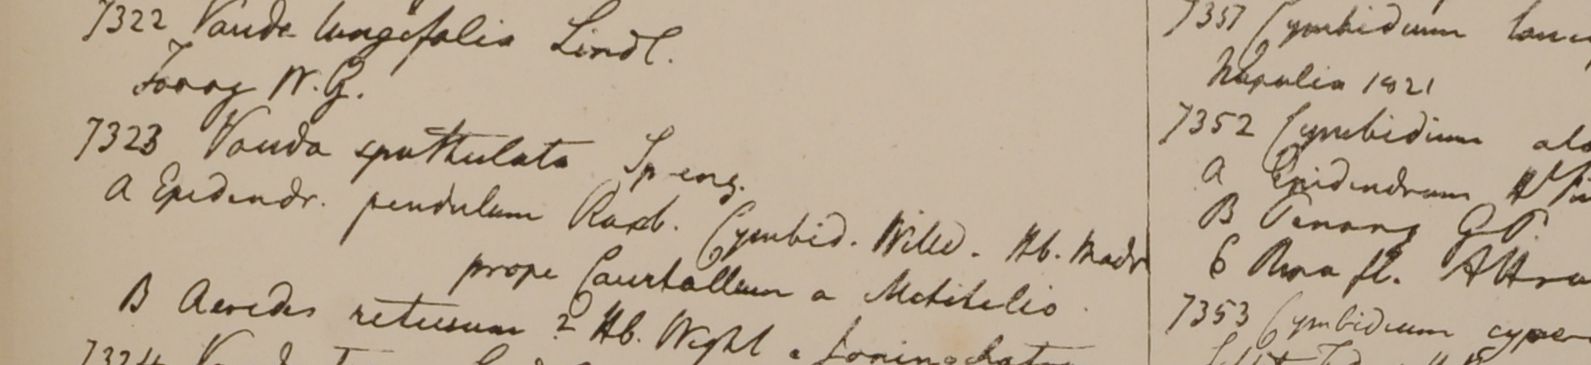 7322 Vanda longifolia Lindl.
Tavoy W.G.
7323 Vanda spathulata Spreng.
A Epidendr. pendulum Roxb. Cymbid. Willd. Hb. Madr
prope Courtallum a
B Aerides retusum? Hb. Wight a
7324
7351 Cymbidium
Napalia 1821
7352 Cymbidium alo
A Epidendrum
B Penang G.P.
6 fl.
7353 Cymbidium cyper